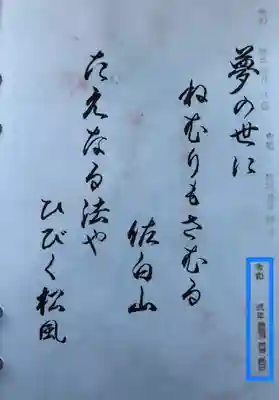 夢の世に
ねむりもさむる
佐白山
たえなる法や
ひびく松風
令和
弐年